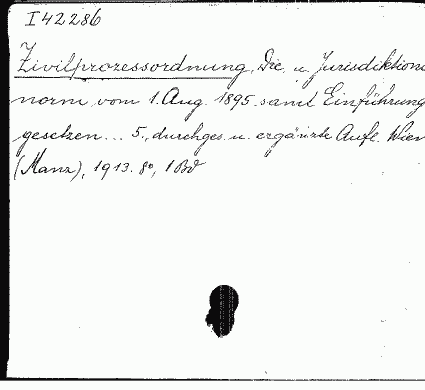 I 42286
Zivilprozessordnung, Die, u. Jurisdiktions
norm vom 1. Aug. 1895 samt Einführung
gesetzen... 5., durchges. u. ergänzte Aufl. Wien
(Manz), 1913. 8°, 1 Bd